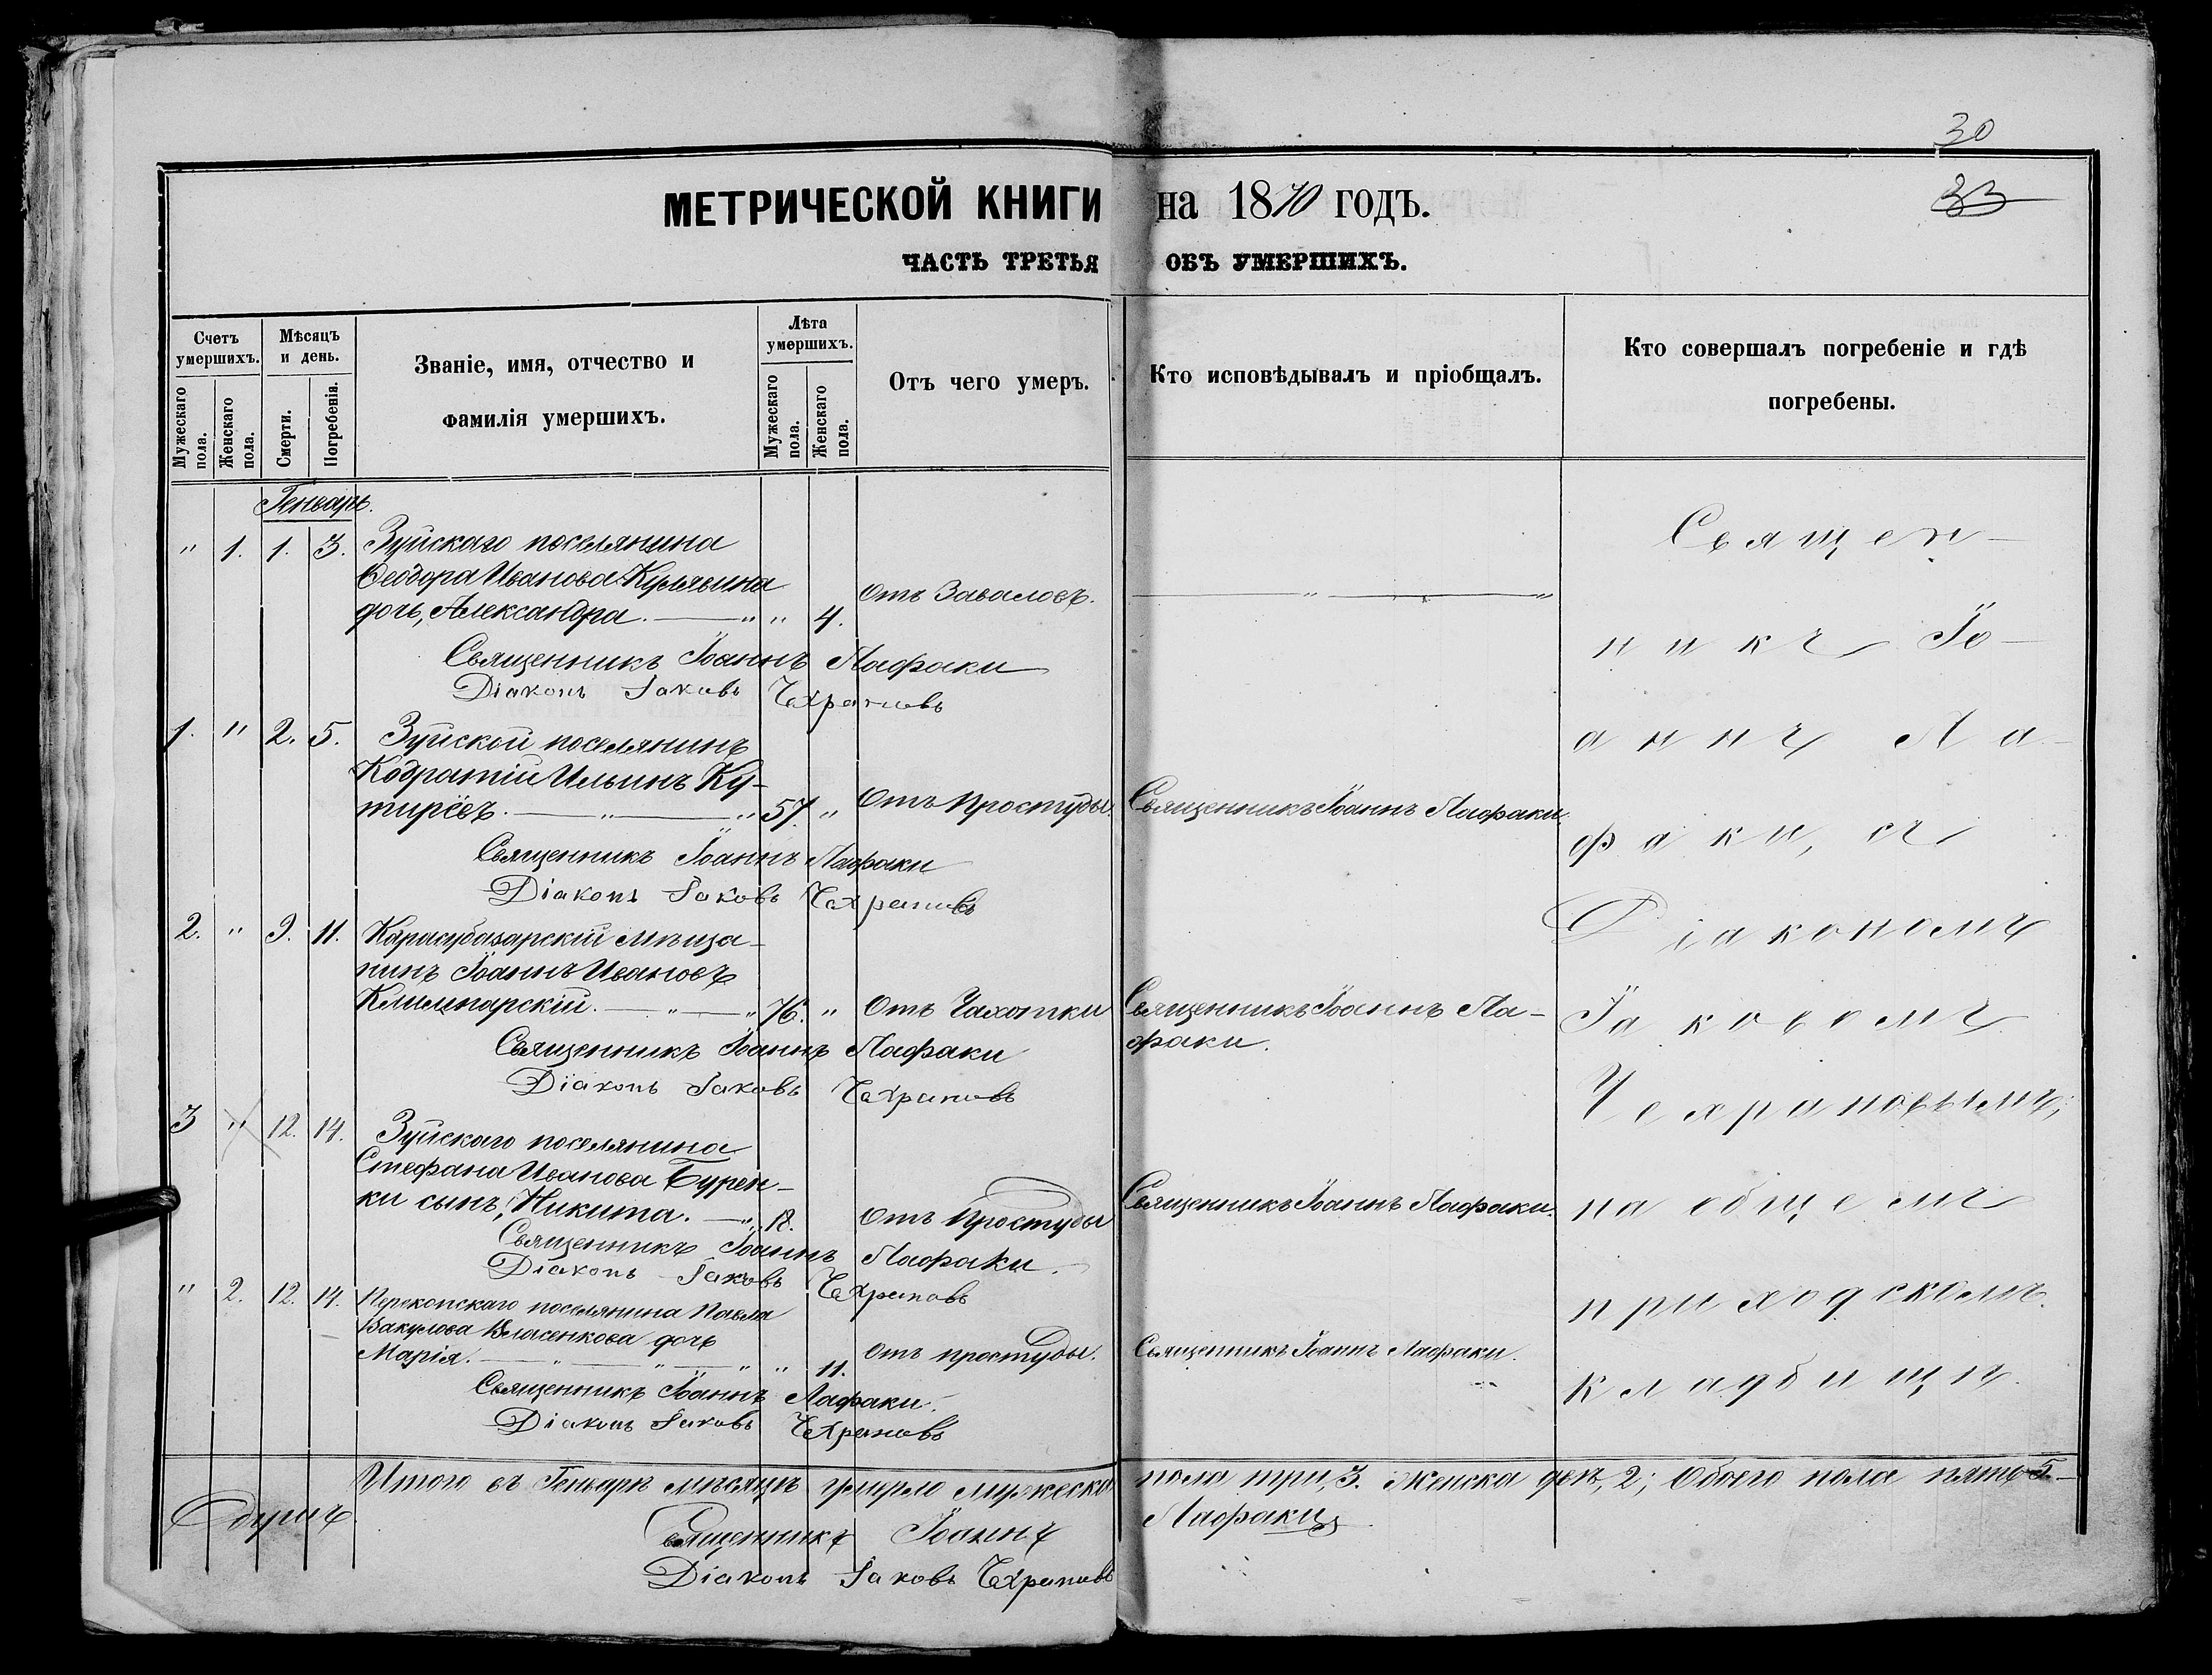 30
МЕТРИЧЕСКОЙ КНИГИ на 1870 годъ.
33
ЧАСТЬ ТРЕТЬЯ ОБЪ УМЕРШИХЪ.
Счетъ умершихъ.
Мужескаго пола.
Женскаго пола.
Мѣсяцъ и день.
Смерти.
Погребенія.
Званіе, имя, отчество и
фамилія умершихъ.
Лѣта умершихъ.
Мужескаго пола.
Женскаго пола.
Отъ чего умеръ.
Кто исповѣдывалъ и пріобщалъ.
Кто совершалъ погребеніе и гдѣ
погребены.
Генварь.
" 1. 1. 3. Зуйскаго поселянина
Ѳеодора Иванова
дочь, Александра. " " 4. Отъ Заваловъ. " "
Священникъ Іоаннъ Лафаки
Діаконъ Іаковъ Чехрановъ
1. " 2. 5. Зуйской поселянинъ
Кодратій Ильинъ Ку-
тирёвъ. " " 57. " Отъ Простуды. Священникъ Іоаннъ Лафаки.
Священникъ Іоаннъ Лафаки
Діаконъ Іаковъ Чехрановъ
2. " 9. 11. Карасубазарскій мѣща-
нинъ Іоаннъ Ивановъ
" " 76. " Отъ Чахотки Священникъ Іоаннъ Ла-
факи.
Священникъ Іоаннъ Лафаки
Діаконъ Іаковъ Чехрановъ
3 " 12. 14. Зуйскаго поселянина
Стефана Иванова Бурен-
ки сынъ, Никита. " 18. Отъ Простуды Священникъ Іоаннъ Лафаки.
Священникъ Іоаннъ Лафаки.
Діаконъ Іаковъ Чехрановъ
" 2. 12. 14. Перекопскаго поселянина Павла
Вакулова Власенкова дочь
Марія. " " " " 11. Отъ простуды. Священникъ Іоаннъ Лафаки.
Священникъ Іоаннъ Лафаки.
Діаконъ Іаковъ Чехрановъ
Священ-
никъ Іо-
аннъ Ла-
факи, съ
Діакономъ
Іаковомъ
Чехрановымъ,
на общемъ
приходскомъ
кладбищѣ.
Итого въ Генварѣ мѣсяцѣ умерло мужеска пола три, 3. Женска двѣ, 2; Обоего пола пять 5.
Священникъ Іоаннъ Лафаки
Діаконъ Іаковъ Чехрановъ